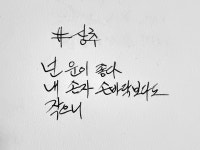 # 상주
넌 운이 좋다
내 손자 손바닥보다도
작으니